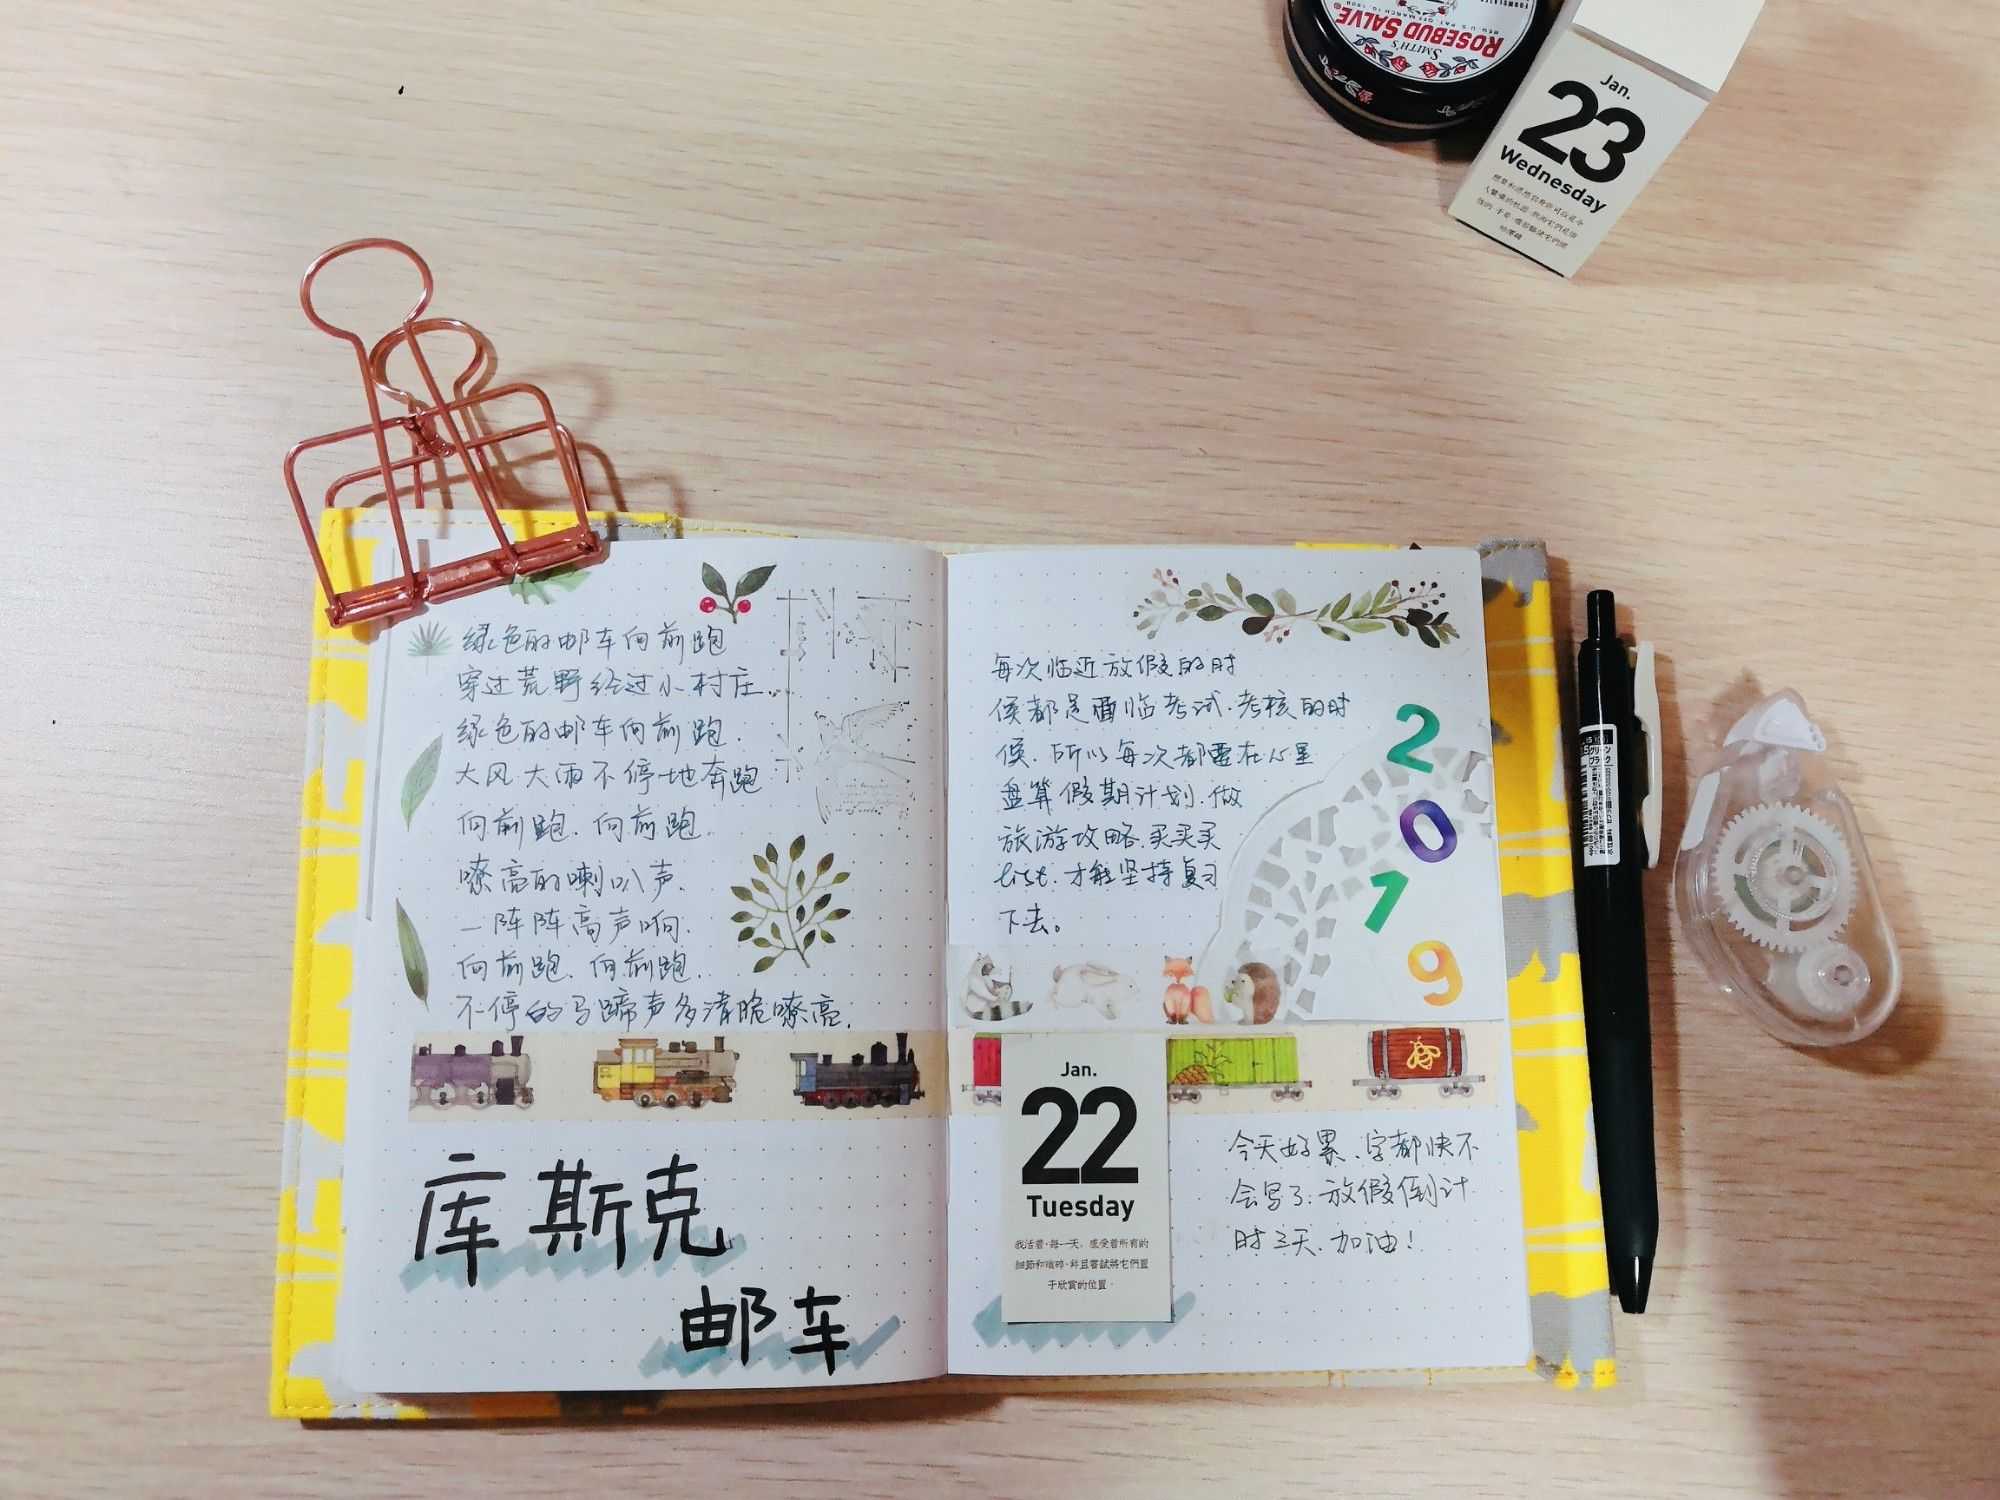 SMITH'S
ROSEBUD SALVE
Jan.
23
Wednesday
绿色的邮车向前跑
穿过荒野经过小村庄.
绿色的邮车向前跑.
大风大雨不停地奔跑
向前跑、向前跑.
嘹亮的喇叭声.
一阵阵高声响.
向前跑、向前跑.
不停的马蹄声多清脆嘹亮.
库斯克
邮车
每次临近放假的时
候都是面临考试.考核的时
候.所以每次都要在心里
盘算假期计划.做
旅游攻略.买买买
list.才能坚持复习
下去。
2
0
1
9
Jan.
22
Tuesday
我活着·每一天，感受着所有的
細節和瑣碎·并且嘗試將它們置
于欣賞的位置·
今天好累、字都快不
会写了.放假倒计
时三天.加油!